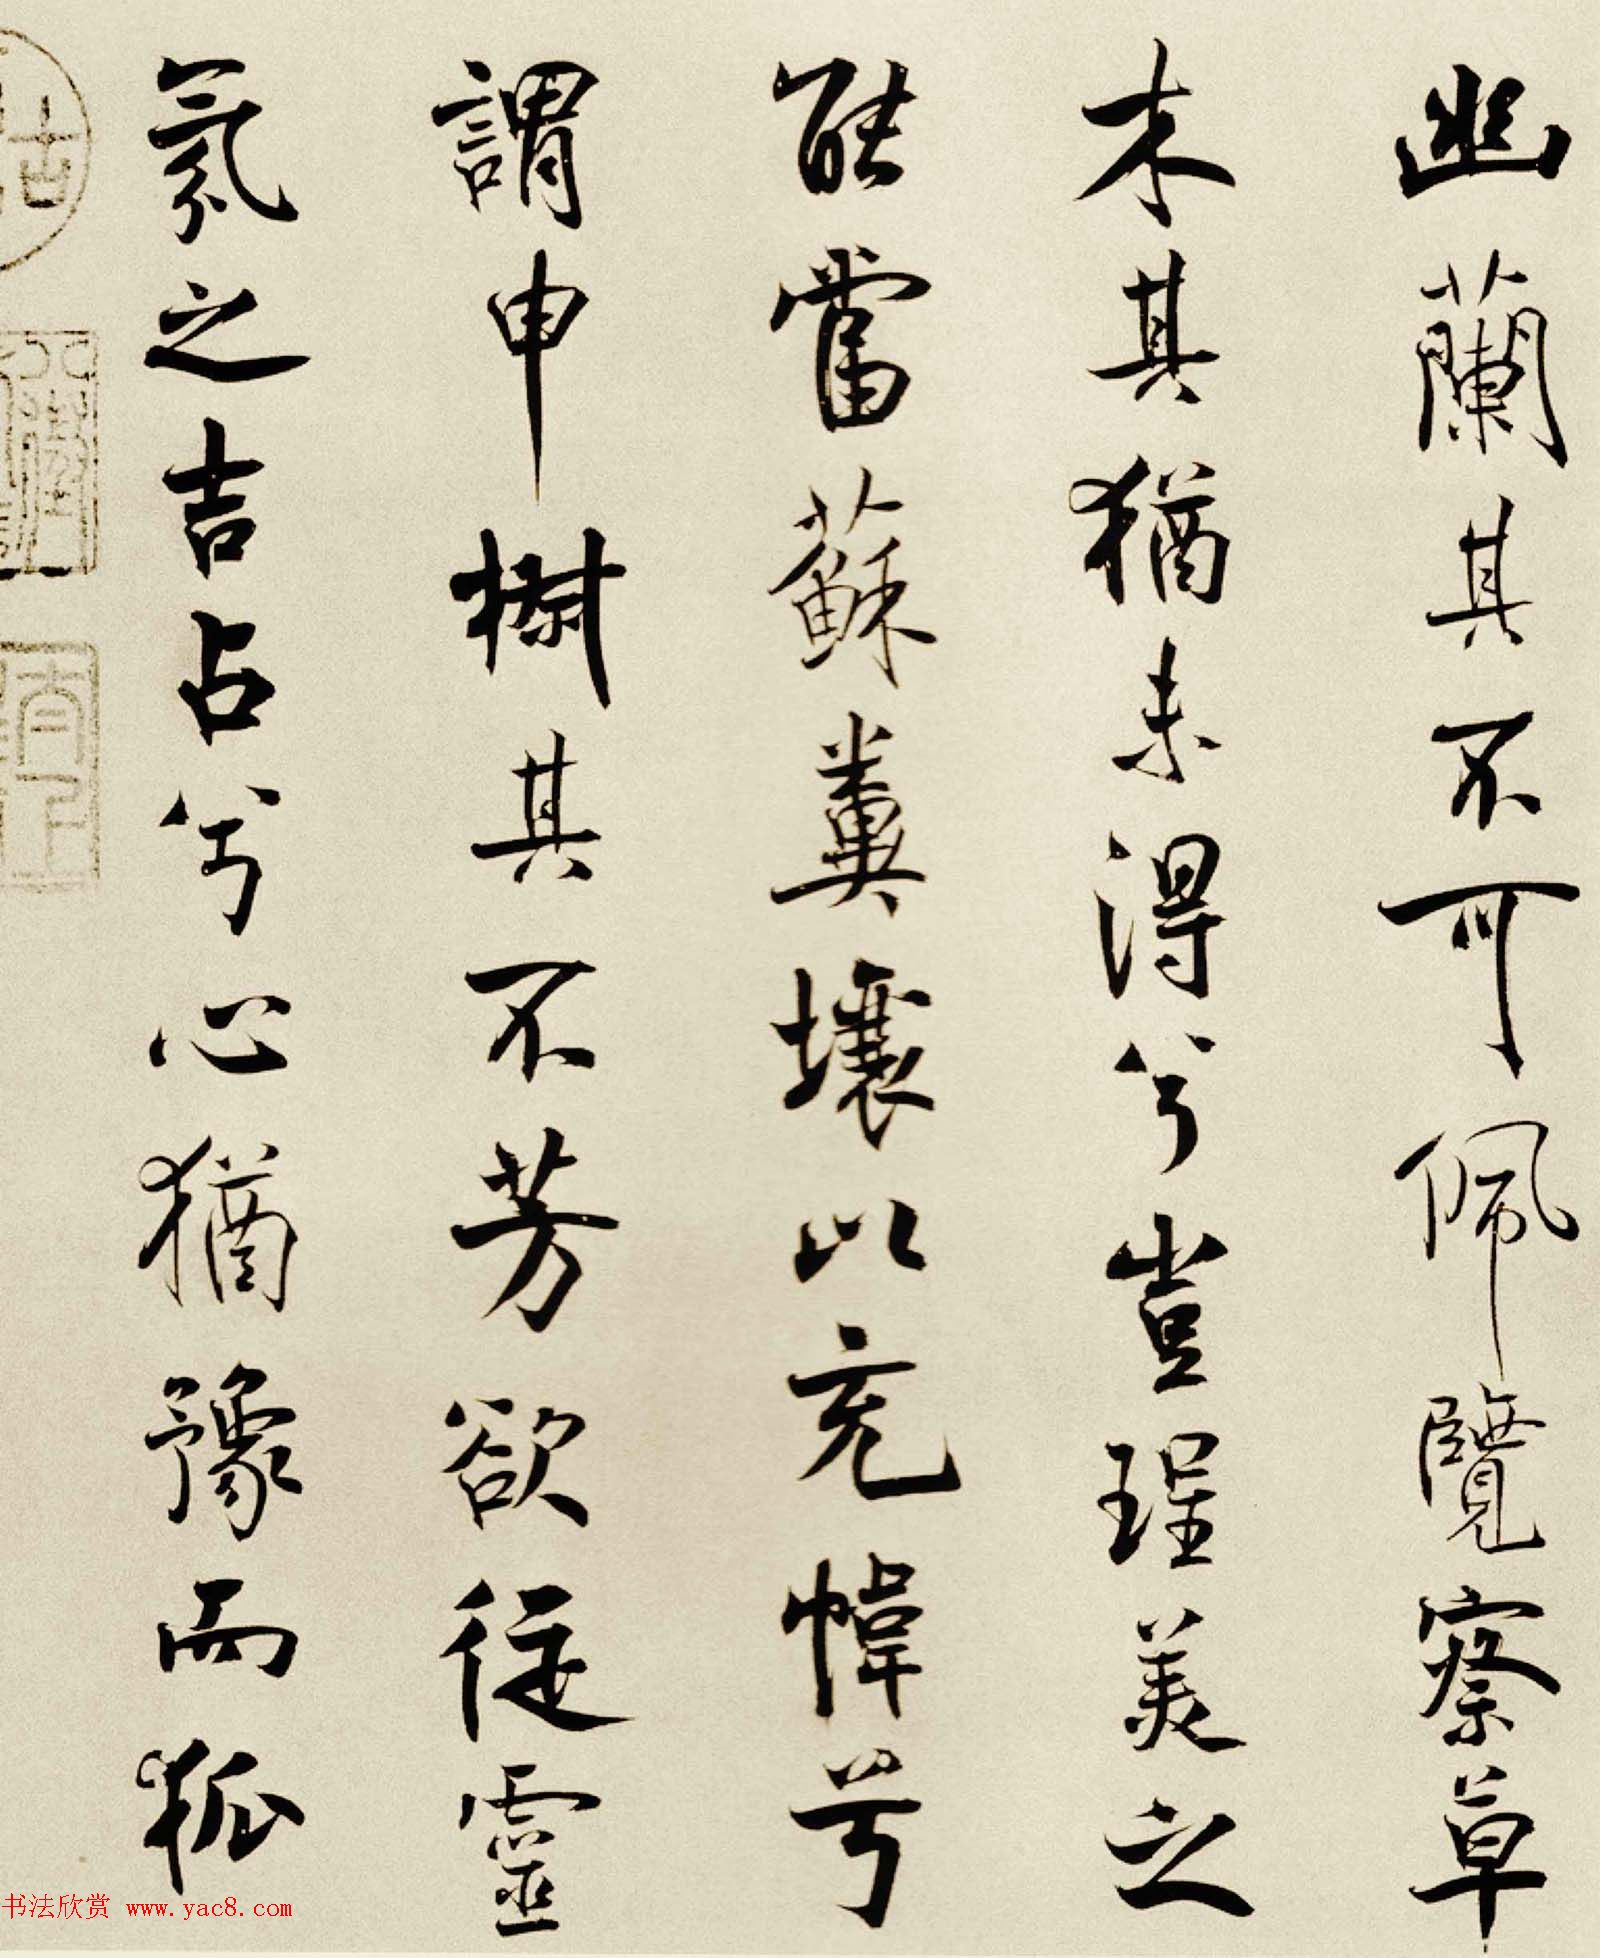 幽蘭其不可佩覽察草
木其猶未得兮豈珵美之
能當蘇糞壤以充幃兮
謂申椒其不芳欲從靈
氛之吉占兮心猶豫而狐
书法欣赏 www.yac8.com